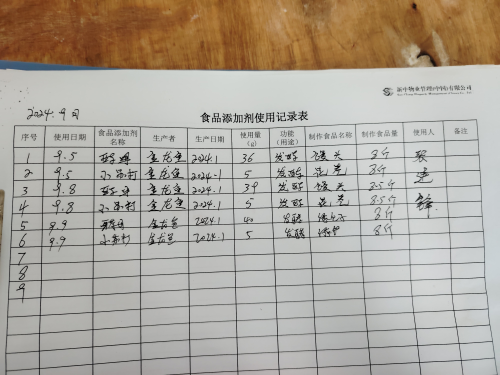 新中物业管理(中国)有限公司
2024.9月
食品添加剂使用记录表
序号 使用日期 食品添加剂名称 生产者 生产日期 使用量(g) 功能(用途) 制作食品名称 制作食品量 使用人 备注
1 9.5 酵母 金龙鱼 2024.1 36 发酵 馒头
2 9.5 小苏打 金龙鱼 2024.1 5 发酵
3 9.8 酵母 金龙鱼 2024.1 39 发酵 馒头 3.5斤
4 9.8 小苏打 金龙鱼 2024.1 5 发酵 3.5斤
5 9.9 酵母 金龙鱼 2024.1 40 发酵
6 9.9 小苏打 金龙鱼 2024.1 5 发酵 8斤
7
8
9